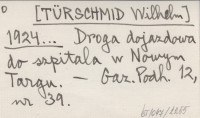 D [TÜRSCHMID Wilhelm]
1924... Droga dojazdowa
do szpitala w Nowym
Targu. — Gaz. Podh. 12,
nr 39.